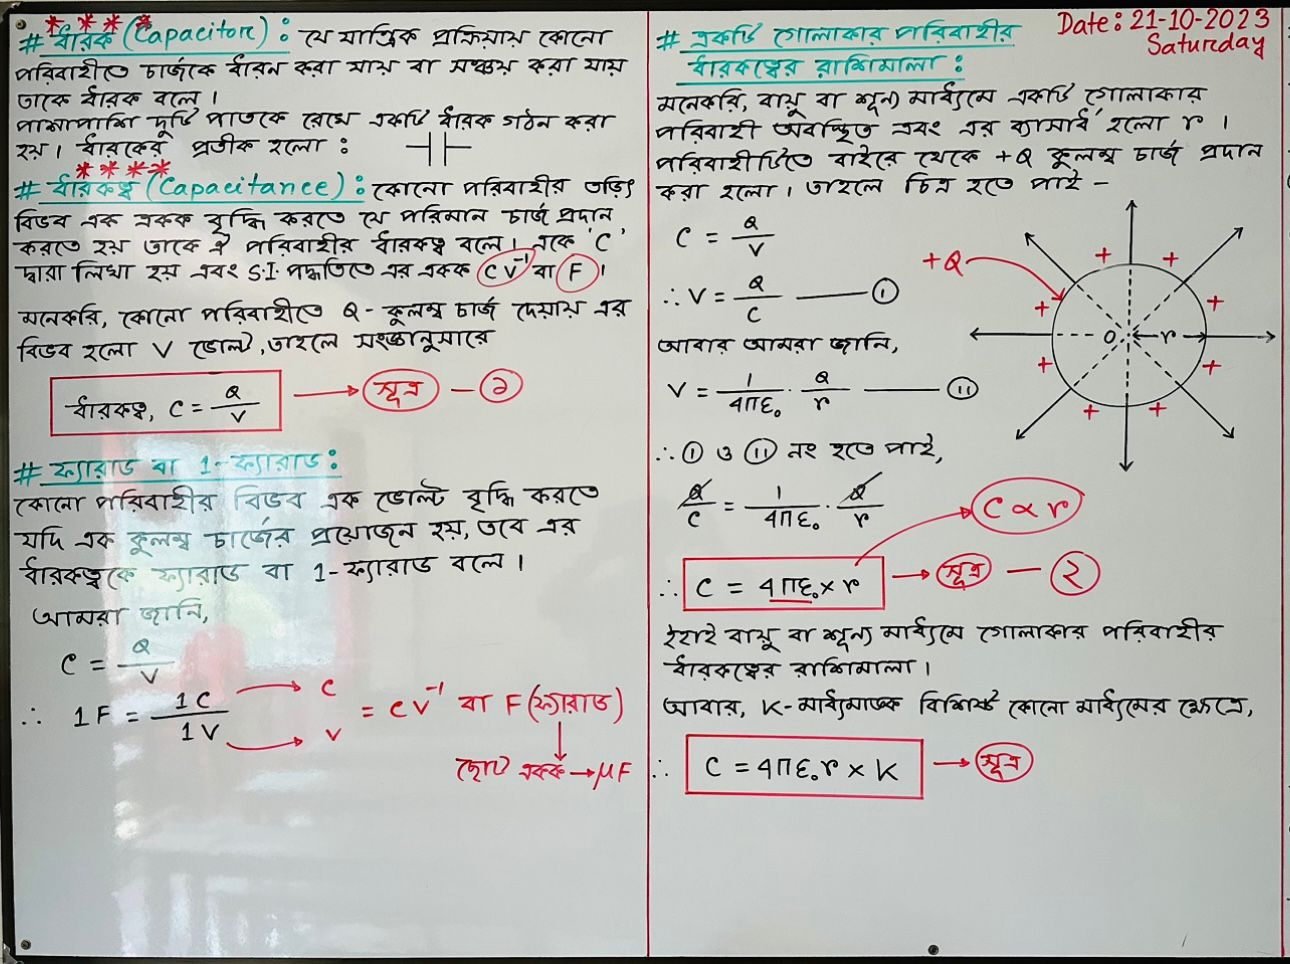 # ধারক (Capacitor) : যে যান্ত্রিক প্রক্রিয়ায় কোনো
পরিবাহীতে চার্জকে ধারন করা যায় বা সঞ্চয় করা যায়
তাকে ধারক বলে।
পাশাপাশি দুটি পাতকে রেখে একটি ধারক গঠন করা
হয়। ধারকের প্রতীক হলো :
# ধারকত্ব (Capacitance) : কোনো পরিবাহীর তড়িৎ
বিভব এক একক বৃদ্ধি করতে যে পরিমান চার্জ প্রদান
করতে হয় তাকে ঐ পরিবাহীর ধারকত্ব বলে। একে 'C'
দ্বারা লিখা হয় এবং S.I পদ্ধতিতে এর একক CV⁻¹ বা F।
মনেকরি, কোনো পরিবাহীতে Q - কুলম্ব চার্জ দেয়ায় এর
বিভব হলো V ভোল্ট, তাহলে সংজ্ঞানুসারে
ধারকত্ব, C = Q/V → সূত্র - ১
# ফ্যারাড বা 1-ফ্যারাড :
কোনো পরিবাহীর বিভব এক ভোল্ট বৃদ্ধি করতে
যদি এক কুলম্ব চার্জের প্রয়োজন হয়, তবে এর
ধারকত্বকে ফ্যারাড বা 1-ফ্যারাড বলে।
আমরা জানি,
C = Q/V
∴ 1F = 1C/1V → C → V = CV⁻¹ বা F (ফ্যারাড)
ছোট একক → μF
Date: 21-10-2023
Saturday
# একটি গোলাকার পরিবাহীর
ধারকত্বের রাশিমালা :
মনেকরি, বায়ু বা শূন্য মাধ্যমে একটি গোলাকার
পরিবাহী অবস্থিত এবং এর ব্যাসার্ধ হলো r ।
পরিবাহীটিতে বাইরে থেকে +Q কুলম্ব চার্জ প্রদান
করা হলো। তাহলে চিত্র হতে পাই -
C = Q/V
∴ V = Q/C — (i)
আবার আমরা জানি,
V = 1/4πε₀ · Q/r — (ii)
∴ (i) ও (ii) নং হতে পাই,
Q/C = 1/4πε₀ · Q/r
C ∝ r
∴ C = 4πε₀ × r → সূত্র - ২
ইহাই বায়ু বা শূন্য মাধ্যমে গোলাকার পরিবাহীর
ধারকত্বের রাশিমালা।
আবার, K-মাধ্যমাঙ্ক বিশিষ্ট কোনো মাধ্যমের ক্ষেত্রে,
∴ C = 4πε₀r × K → সূত্র
+Q
+ + + + + + + +
O r